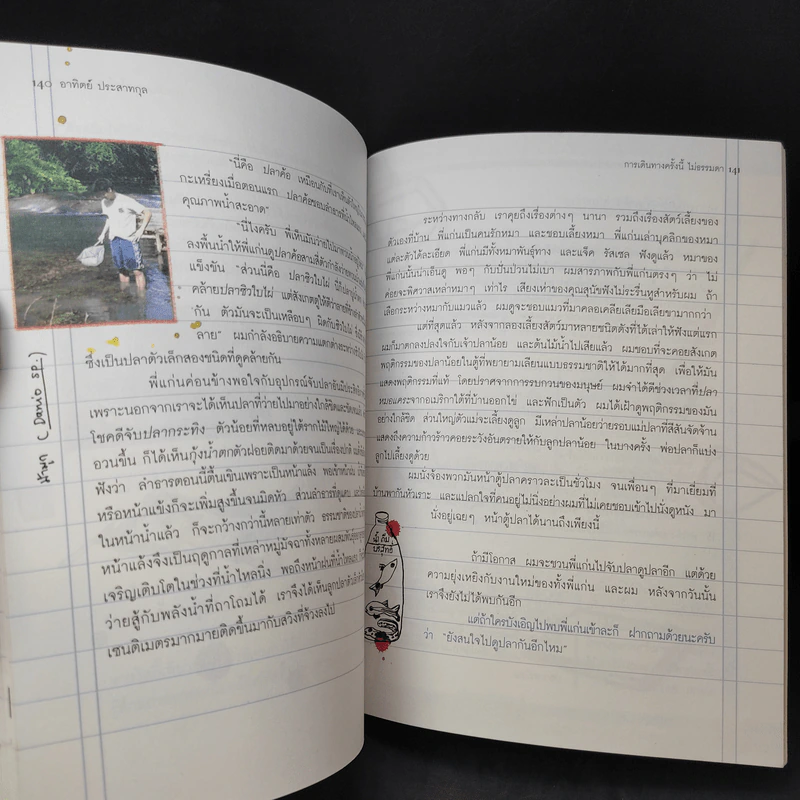 140 อาทิตย์ ประสาทกุล
"นี่คือ ปลาค้อ เหมือนกับที่เราเห็น
กะเหรี่ยงเมื่อตอนแรก ปลาค้อชอบลำธารที่
คุณภาพน้ำสะอาด"
"นี่ไงครับ พี่เห็นมันว่ายไปมา
ลงพื้นน้ำให้พี่แก่นดูปลาค้อสามสี่ตัวกำลังว่าย
แข็งขัน "ส่วนนี่คือ ปลาซิวใบไผ่
คล้ายปลาซิวใบไผ่ แต่สังเกตดูให้ดีว่าลาย
กัน ตัวมันจะเป็นเหลือบๆ ผิดกับซิวใบไผ่
ลาย" ผมกำลังอธิบายความแตกต่างระหว่าง
ซึ่งเป็นปลาตัวเล็กสองชนิดที่ดูคล้ายกัน
พี่แก่นค่อนข้างพอใจกับอุปกรณ์จับปลาอันมีประสิทธิ
เพราะนอกจากเราจะได้เห็นปลาที่ว่ายไปมาอย่างใกล้ชิดและชัดเจน
โชคดีจับปลากระทิง ตัวน้อยที่หลบอยู่ใต้รากไม้ใหญ่ได้ด้วย
อวนขึ้น ก็ได้เห็นกุ้งน้ำตกตัวฝอยติดมาด้วยจนเป็นเรื่องปกติ
ฟังว่า ลำธารตอนนี้ตื้นเขินเพราะเป็นหน้าแล้ง พอเข้าหน้าฝน
หรือหน้าแข้งก็จะเพิ่มสูงขึ้นจนมิดหัว ส่วนลำธารที่ดูแคบ
ในหน้าน้ำแล้ว ก็จะกว้างกว่านี้หลายเท่าตัว ธรรมชาติของปลา
หน้าแล้งจึงเป็นฤดูกาลที่เหล่ามู่มัจฉาทั้งหลายผสมพันธุ์
เจริญเติบโตในช่วงที่น้ำไหลนิ่ง พอถึงหน้าฝนที่น้ำไหลแรง
ว่ายสู้กับพลังน้ำที่ถาโถมได้ เราจึงได้เห็นลูกปลาตัวเล็ก
เซนติเมตรมากมายติดขึ้นมากับสวิงที่จ้วงลงไป
การเดินทางครั้งนี้ ไม่ธรรมดา 141
ระหว่างทางกลับ เราคุยถึงเรื่องต่างๆ นานา รวมถึงเรื่องสัตว์เลี้ยงของ
ตัวเองที่บ้าน พี่แก่นเป็นคนรักหมา และชอบเลี้ยงหมา พี่แก่นเล่าบุคลิกของหมา
แต่ละตัวได้ละเอียด พี่แก่นมีทั้งหมาพันธุ์ทาง และแจ็ค รัสเซล ฟังดูแล้ว หมาของ
พี่แก่นนั้นน่าเอ็นดู พอๆ กับปั่นป่วนไม่เบา ผมสารภาพกับพี่แก่นตรงๆ ว่า ไม่
ค่อยจะพิศวาสเหล่าหมาๆ เท่าไร เสียงเห่าของคุณสุนัขฟังไม่ระรื่นหูสำหรับผม ถ้า
เลือกระหว่างหมากับแมวแล้ว ผมดูจะชอบแมวที่มาคลอเคลียเลียมือเลียขามากกว่า
แต่ที่สุดแล้ว หลังจากลองเลี้ยงสัตว์มาหลายชนิดดังที่ได้เล่าให้ฟังแต่แรก
ผมก็มาตกลงปลงใจกับเจ้าปลาน้อย และต้นไม้น้ำไปเสียแล้ว ผมชอบที่จะคอยสังเกต
พฤติกรรมของปลาน้อยในตู้ที่พยายามเลียนแบบธรรมชาติให้ได้มากที่สุด เพื่อให้มัน
แสดงพฤติกรรมที่แท้ โดยปราศจากการรบกวนของมนุษย์ ผมจำได้ดีช่วงเวลาที่ปลา
หมอแคระจากอเมริกาใต้ที่บ้านออกไข่ และฟักเป็นตัว ผมได้เฝ้าดูพฤติกรรมของมัน
อย่างใกล้ชิด ส่วนใหญ่ตัวแม่จะเลี้ยงดูลูก มีเหล่าปลาน้อยว่ายรอบแม่ปลาที่สีสันจัดจ้าน
แสดงถึงความก้าวร้าวคอยระวังอันตรายให้กับลูกปลาน้อย ในบางครั้ง พ่อปลาก็แบ่ง
ลูกไปเลี้ยงดูด้วย
ผมนั่งจ้องพวกมันหน้าตู้ปลาคราวละเป็นชั่วโมง จนเพื่อนๆ ที่มาเยี่ยมที่
บ้านพากันหัวเราะ และแปลกใจที่คนอยู่ไม่นิ่งอย่างผมที่ไม่เคยชอบเข้าไปนั่งดูหนัง มา
นั่งอยู่เฉยๆ หน้าตู้ปลาได้นานถึงเพียงนี้
ถ้ามีโอกาส ผมจะชวนพี่แก่นไปจับปลาดูปลาอีก แต่ด้วย
ความยุ่งเหยิงกับงานใหม่ของทั้งพี่แก่น และผม หลังจากวันนั้น
เราจึงยังไม่ได้พบกันอีก
แต่ถ้าใครบังเอิญไปพบพี่แก่นเข้าละก็ ฝากถามด้วยนะครับ
ว่า "ยังสนใจไปดูปลากันอีกไหม"